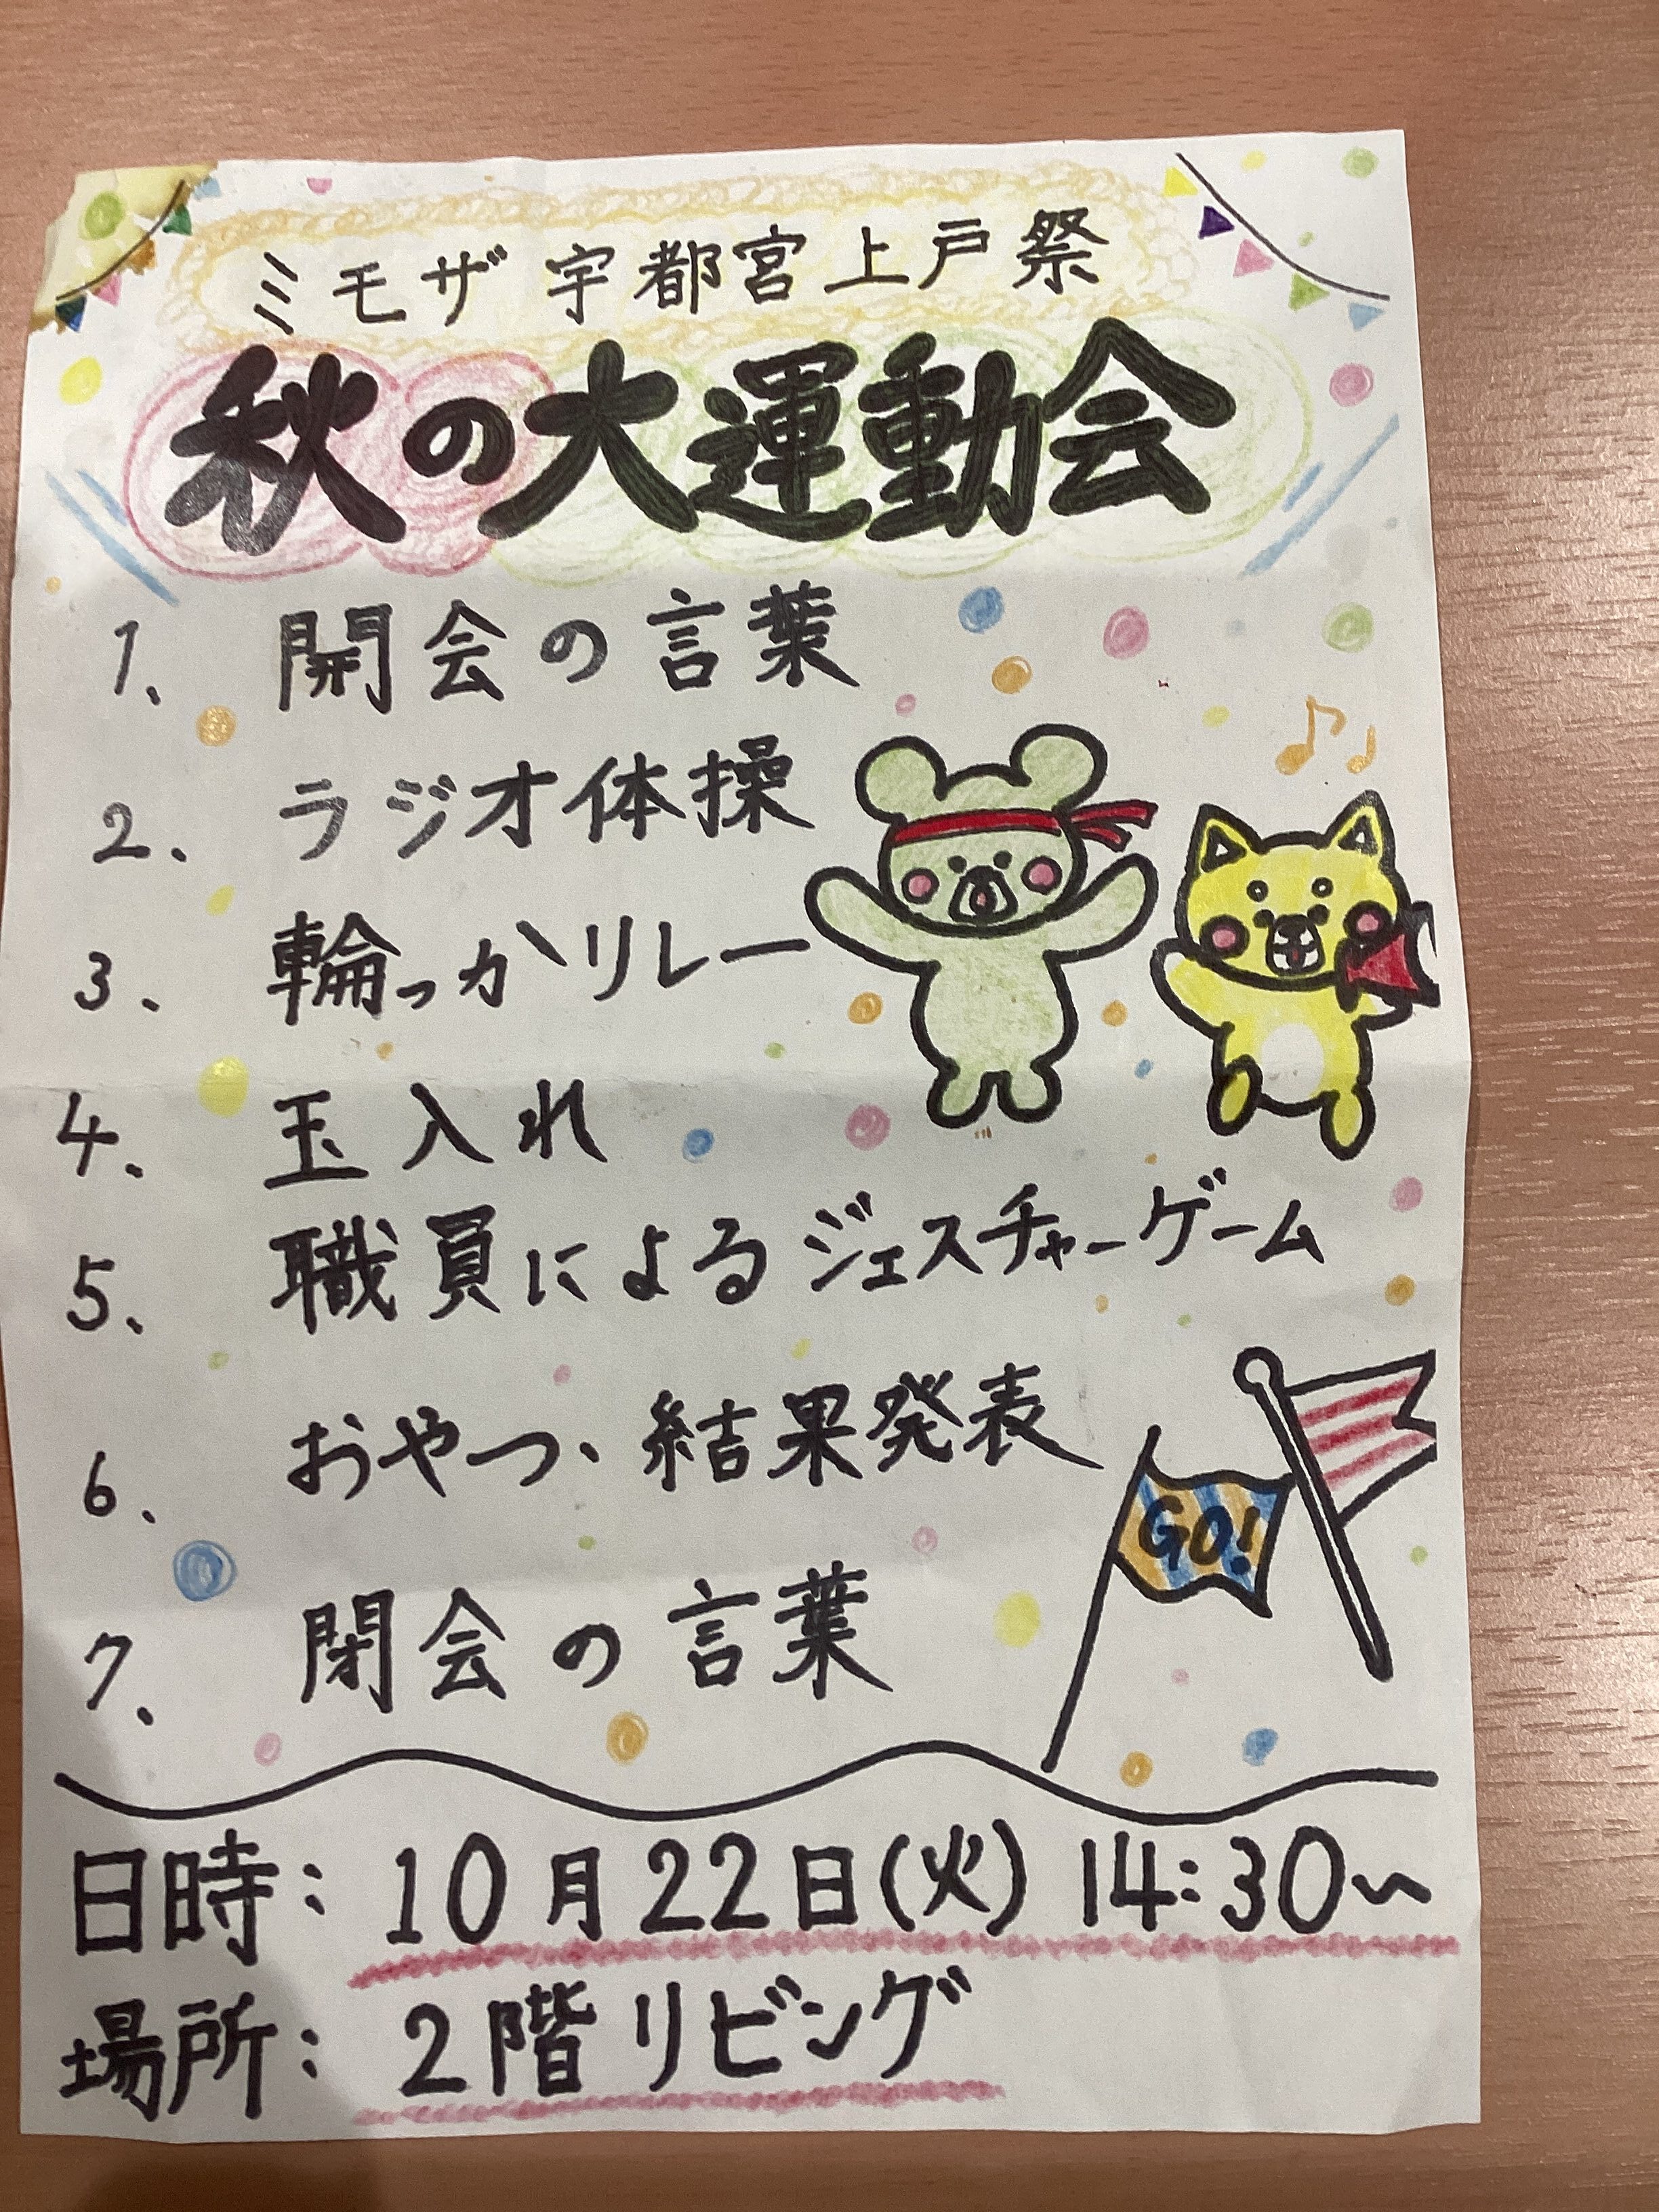 ミモザ宇都宮上戸祭
秋の大運動会
1、 開会の言葉
2、 ラジオ体操
3、 輪っかリレー
4、 玉入れ
5、 職員によるジェスチャーゲーム
6、 おやつ、結果発表
GO!
7、 閉会の言葉
日時: 10月22日(火) 14:30~
場所: 2階リビング